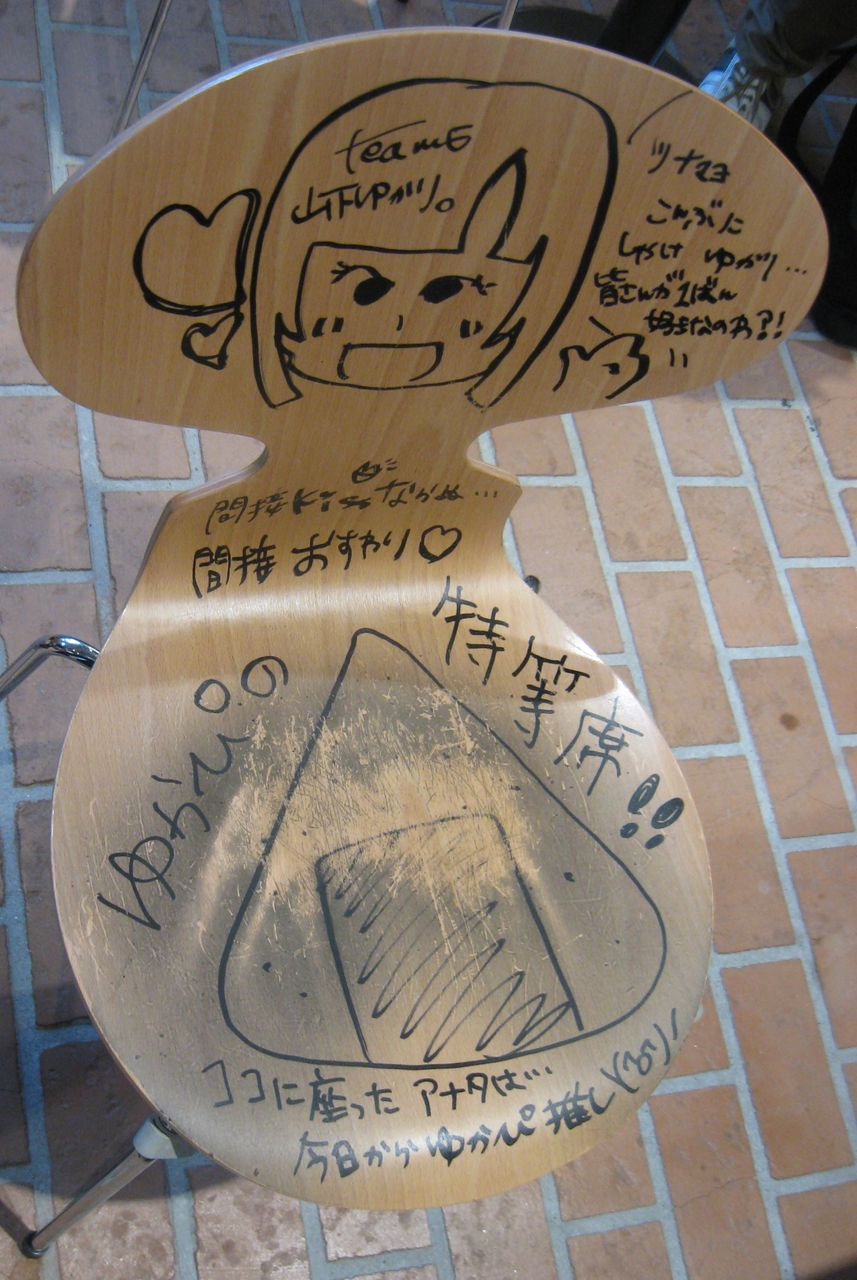 teamE
山下ゆかり。
ツナマヨ
こんぶに
しゃけ ゆかり…
皆さんが1ばん
好きなのわ?!
間接kissながめ…
間接 おすわり♡
ゆかぴの
特等席!!
ココに座った アナタは…
今日からゆかぴ推し